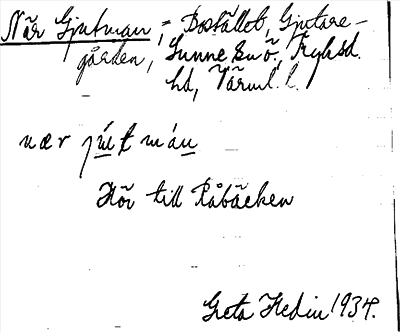 När Gjutman, = Bostället, Gjutare-
gården, Sunne sn o., Fryksd.
hd, Värml. l.
nær ju̲t má̲n
Hör till Råbäcken
Greta Hedin 1934.